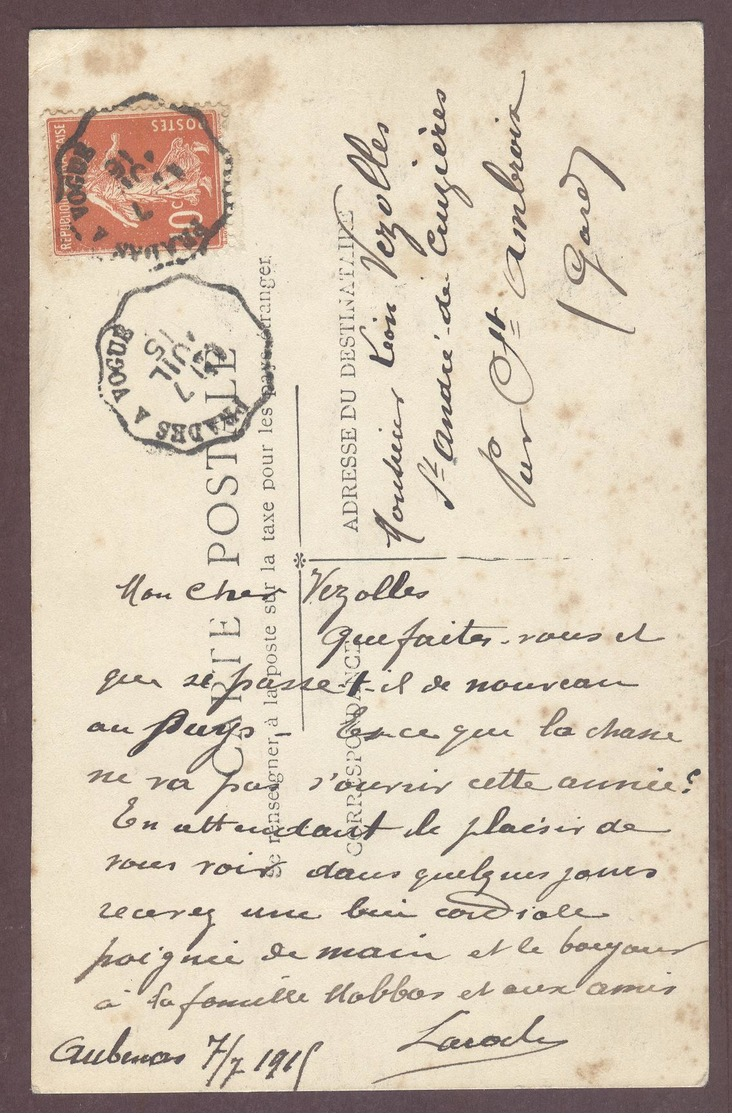 CARTE POSTALE
Se renseigner à la poste sur la taxe pour les pays étranger
CORRESPONDANCE
ADRESSE DU DESTINATAIRE
REPUBLIQUE FRANÇAISE
POSTES
10 c
PRADES A VOGUE
7
JUIL
15
PRADES A VOGUE
7
JUIL
15
Monsieur Léon Vezolles
St André-de Cruzières
Par St Ambroix
(Gard)
Mon cher Vezolles
Que faites-vous et
que se passe t-il de nouveau
au pays - Es-ce que la chasse
ne va pas s'ouvrir cette année?
En attendant le plaisir de
vous voir dans quelques jours
recevez une bien cordiale
poignée de main et le bonjour
à la famille Habbas et aux amis
Laroche
Aubenas 7/7 1915